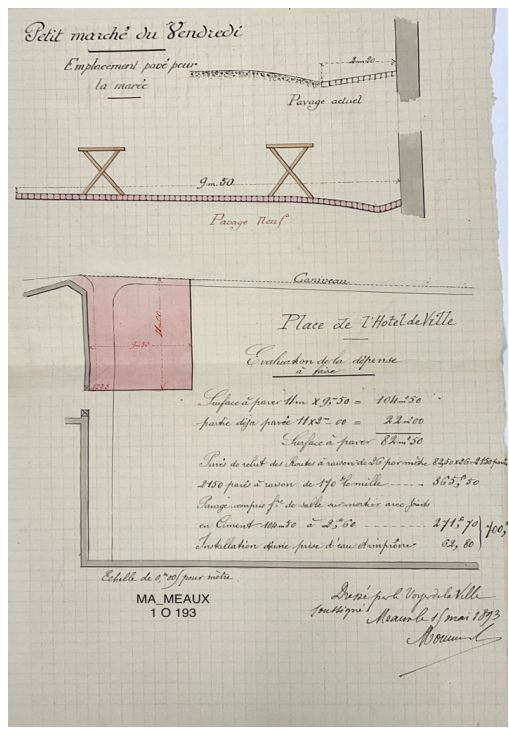 Petit marché du Vendredi
Emplacement pavé pour
la marée
2m20
Pavage actuel
9m.50
Pavage Neuf
Caniveau
11.00
9.50
Place de l'Hotel de Ville
Evaluation de la dépense
à faire
Surface à paver 11m x 9m50 = 104m50
partie déja pavée 11x2m00 = 22m00
Surface à paver 82m50
Pavés de rebut des Routes à raison de 26 par mètre 82,50x26=2150 pavés
2150 pavés à raison de 170 le mille 365f,50
Pavage compris fre de sable au mortier avec joints
en Ciment 104m50 à 2f,60 271f,70
700f
Installation d'une prise d'eau 62,80
Echelle de 0m,005 pour mètre.
MA_MEAUX
1 O 193
Dressé par le Voyer de la Ville
soussigné
Meaux le 15 mai 1893